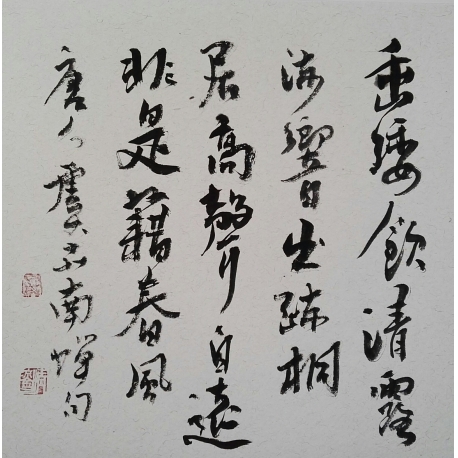 垂緌飲清露
流響出疎桐
居高聲自遠
非是籍春風
唐人虞世南蟬句